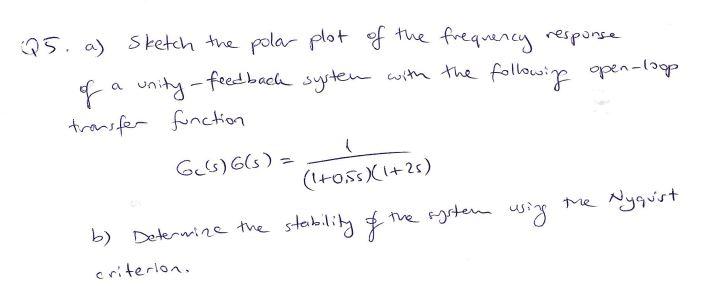 Q5. a) Sketch the polar plot of the frequency response
of a unity-feedback system with the following open-loop
transfer function
Gc(s)G(s) = 1 / (1+0,5s)(1+2s)
b) Determine the stability of the system using the Nyquist
criterion.